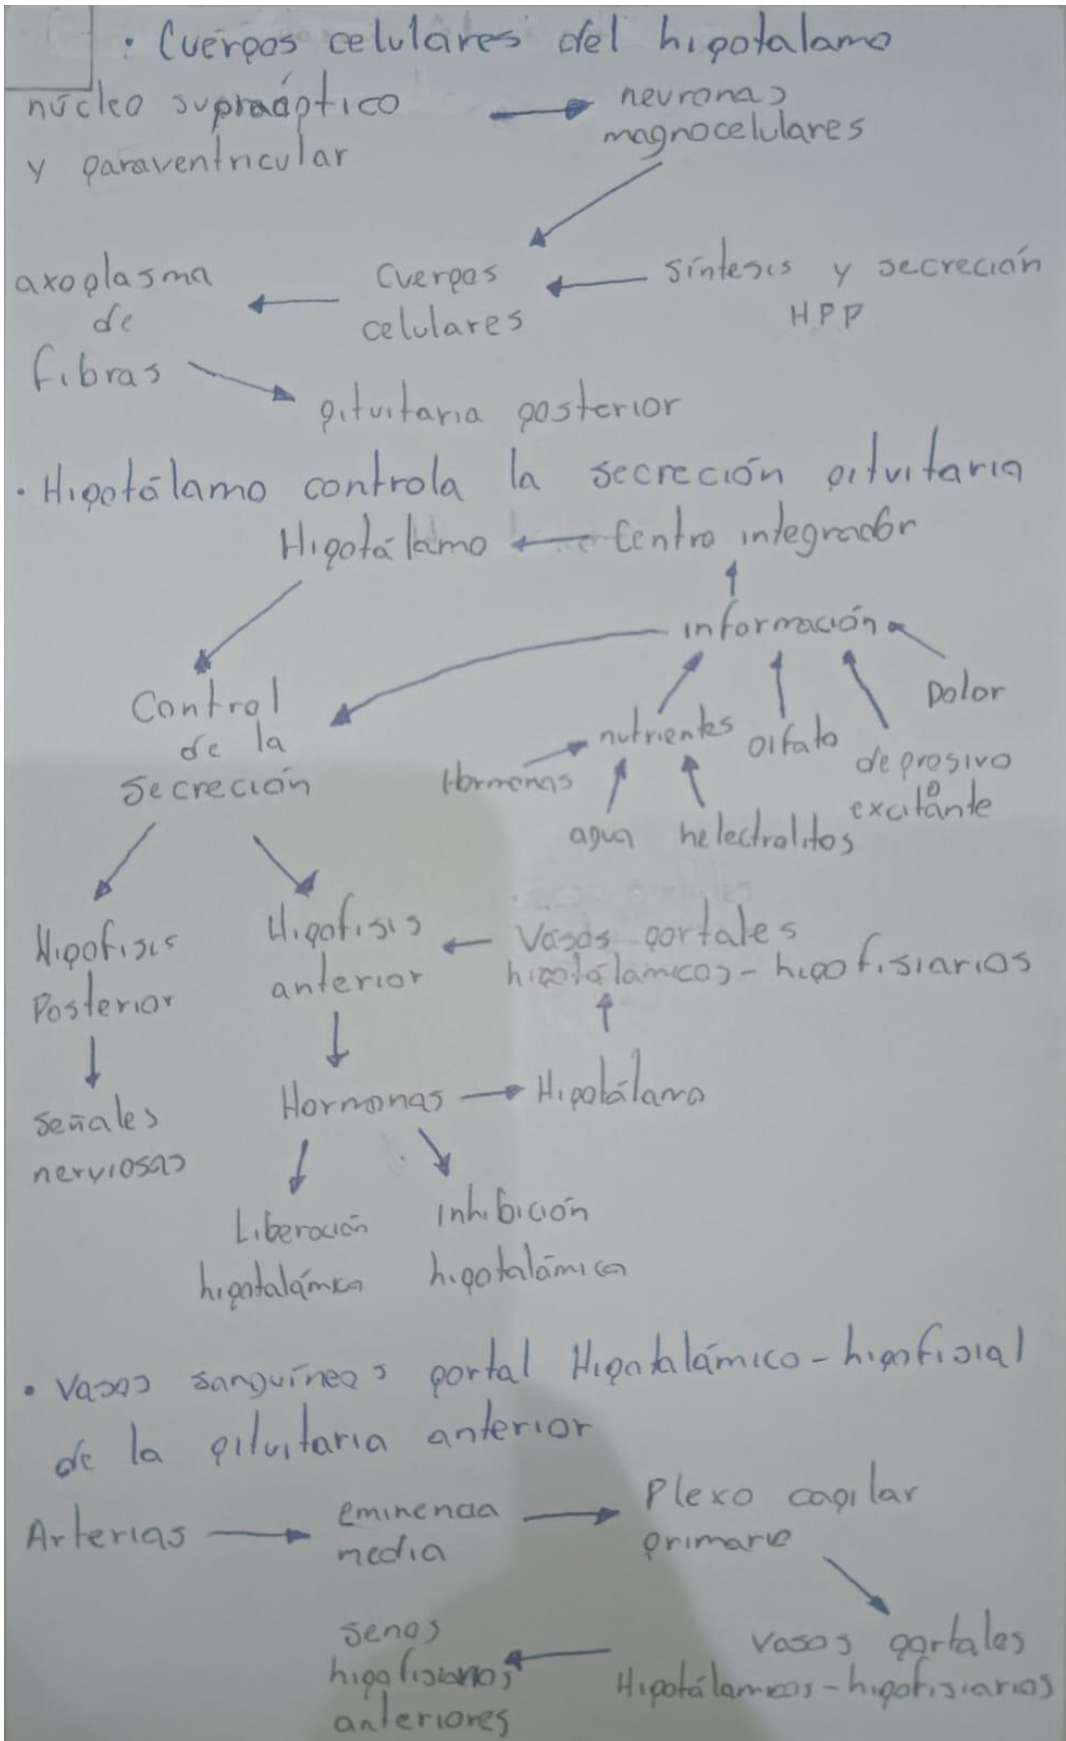 · Cuerpos celulares del hipotalamo
núcleo supraóptico
y paraventricular
neuronas
magnocelulares
axoplasma
de
fibras
Cuerpos
celulares
síntesis y secreción
HPP
pituitaria posterior
· Hipotálamo controla la secreción pituitaria
Hipotálamo
Centro integrador
información
Control
de la
secreción
nutrientes
olfato
Dolor
depresivo
o
excitante
Hormonas
agua
helectrolitos
Hipofisis
Posterior
Hipofisis
anterior
Vasos portales
hipotálamicos-hipofisiarios
señales
nerviosas
Hormonas
Hipotálamo
Liberación
hipotalámica
Inhibición
hipotalámica
· Vasos sanguíneos portal Hipotalámico-hipofisial
de la pituitaria anterior
Arterias
eminencia
media
Plexo capilar
primario
senos
hipofisiarios
anteriores
vasos portales
Hipotálamicos-hipofisiarios